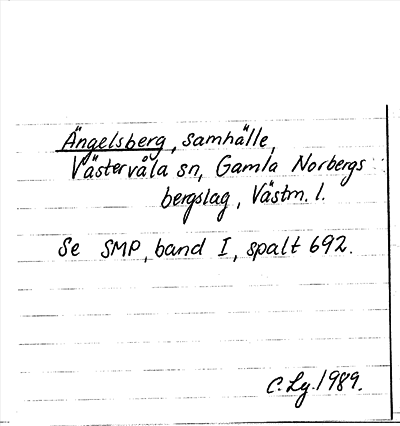 Ängelsberg, samhälle,
Västervåla sn, Gamla Norbergs
bergslag, Västm. l.
Se SMP, band I, spalt 692.
C. Lg. 1989.